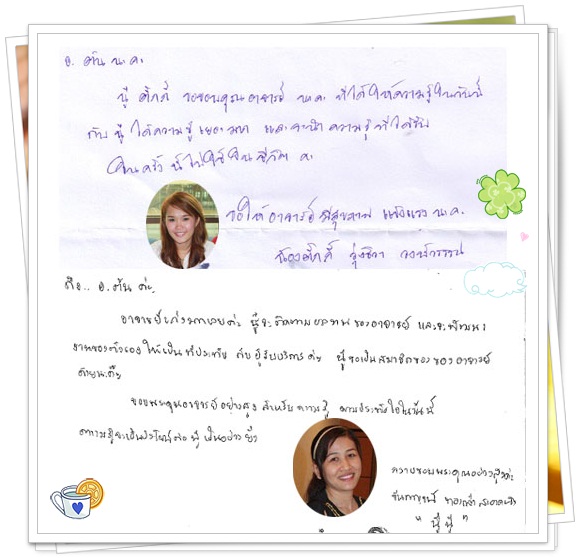 อ. ต้น นะคะ
นู๋ ติ๊กกี้ ขอขอบคุณอาจารย์ นะคะ ที่ได้ให้ความรู้ในวันนี้
กับ นู๋ ได้ความรู้ เยอะมาก และจะนำ ความรู้ ที่ได้รับ
ในครั้ง นี้ไปใช้ใน ชีวิต คะ
ขอให้ อาจารย์ มีสุขภาพ แข็งแรง นะคะ
น้องติ๊กกี้
ถึง.. อ. ต้น ค่ะ
อาจารย์เก่งมากเลยค่ะ นู๋จะติดตามผลงาน ของอาจารย์ และจะพัฒนา
งานของตัวเอง ให้เป็น ที่ประทับใจ กับ ผู้รับบริการ ค่ะ นู๋ขอเป็นสมาชิกของ ของ อาจารย์
ด้วยนะค๊ะ
ขอบพระคุณอาจารย์อย่างสูง สำหรับ ความรู้ ความประทับใจในวันนี้
ความรู้จะเป็นประโยชน์ต่อ นู๋ เป็นอย่าง ยิ่ง
ความขอบพระคุณอย่างสูงค่ะ
" นู๋นุ๋ "